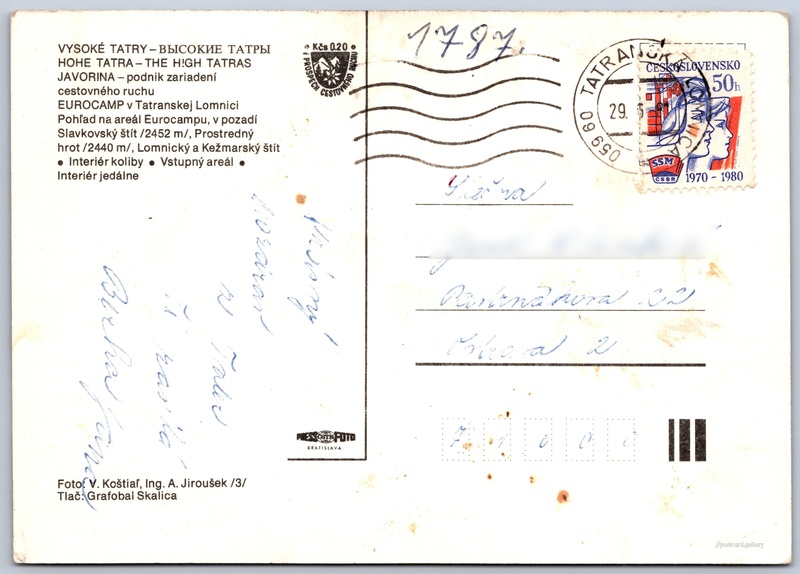 VYSOKÉ TATRY – ВЫСОКИЕ ТАТРЫ
HOHE TATRA – THE H!GH TATRAS
JAVORINA – podnik zariadení
cestovného ruchu
EUROCAMP v Tatranskej Lomnici
Pohľad na areál Eurocampu, v pozadí
Slavkovský štít /2452 m/, Prostredný
hrot /2440 m/, Lomnický a Kežmarský štít
● Interiér koliby ● Vstupný areál ●
Interiér jedálne
Kčs 0.20
V PROSPECH CESTOVNÉHO RUCHU
1787.
059 60 TATRANSKÁ LOMNICA
29.
ČESKOSLOVENSKO
50h
SSM
ČSSR
1970 – 1980
Vážená
22
2
7 1 0 0 0
Srdečný
pozdrav
z Tatier
PRESSFOTO
BRATISLAVA
Foto: V. Koštiaľ, Ing. A. Jiroušek /3/
Tlač: Grafobal Skalica
postcard.gallery